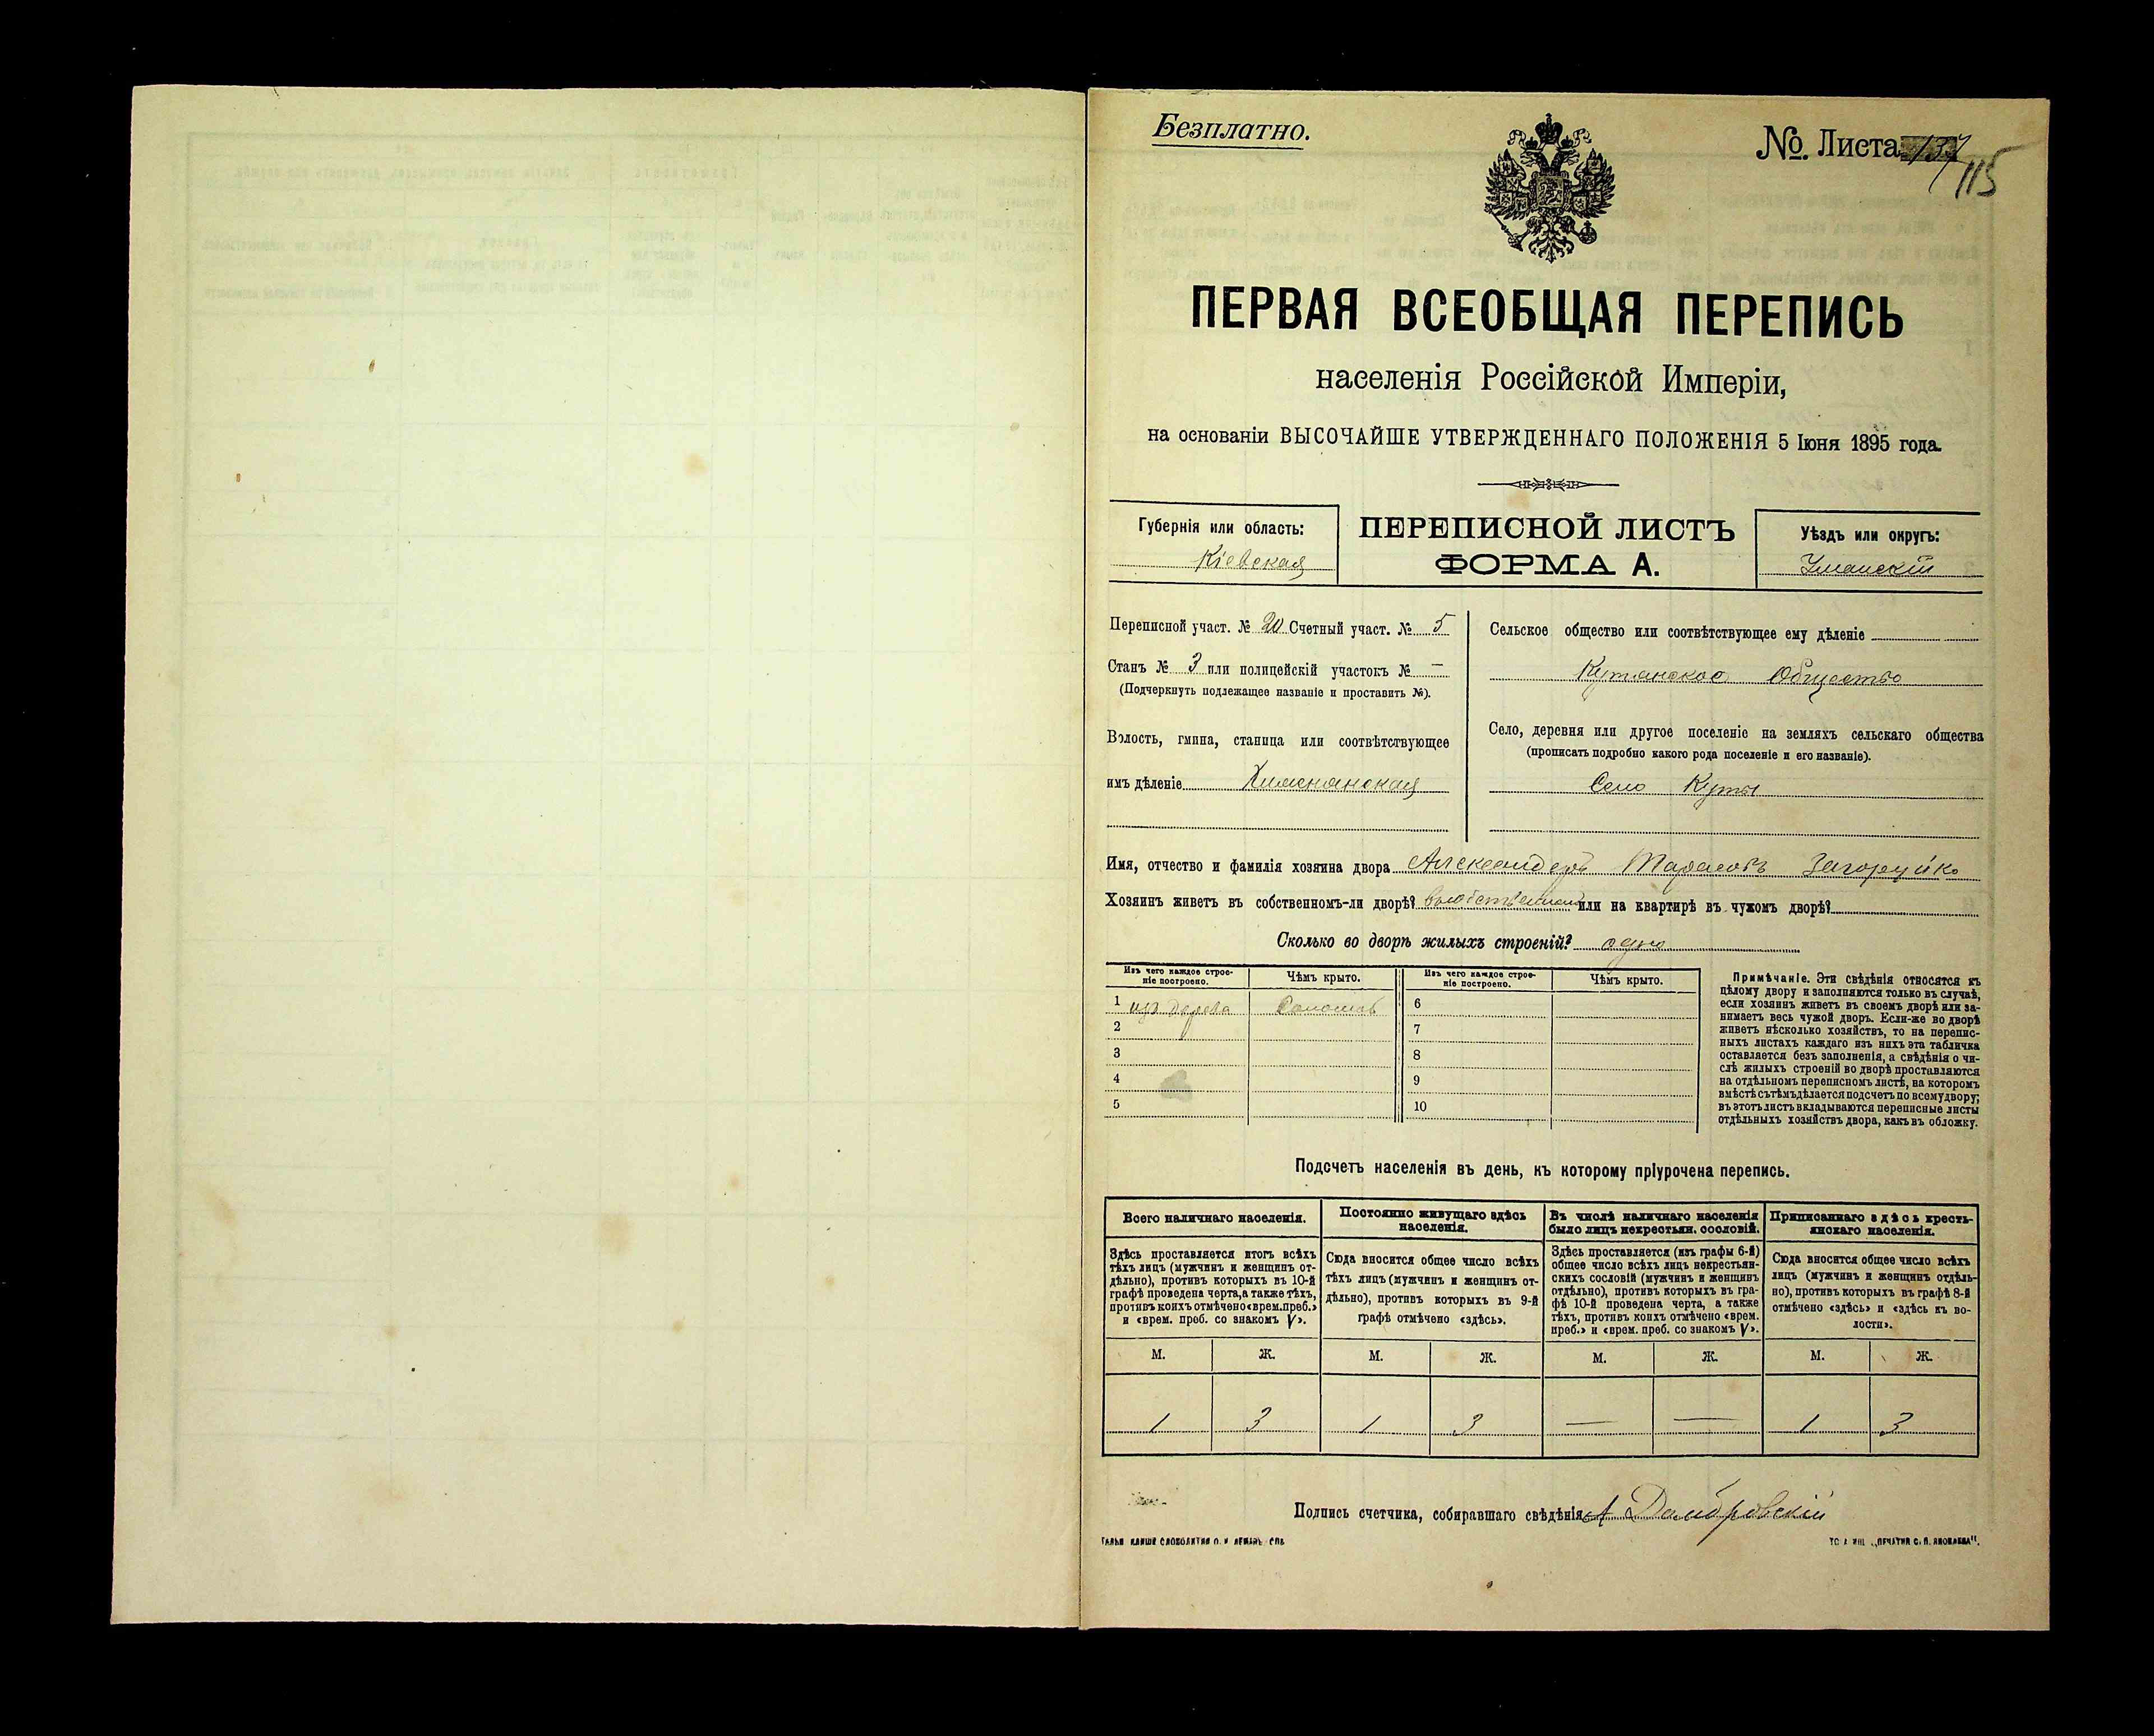 Безплатно.
№. Листа 137
115
ПЕРВАЯ ВСЕОБЩАЯ ПЕРЕПИСЬ
населенія Россійской Имперіи,
на основаніи ВЫСОЧАЙШЕ УТВЕРЖДЕННАГО ПОЛОЖЕНІЯ 5 Іюня 1895 года.
Губернія или область:
Кіевская
ПЕРЕПИСНОЙ ЛИСТЪ
ФОРМА А.
Уѣздъ или округъ:
Уманскій
Переписной участ. № 20 Счетный участ. № 5
Станъ № 3 или полицейскій участокъ № —
(Подчеркнуть подлежащее названіе и проставить №).
Волость, гмина, станица или соотвѣтствующее
имъ дѣленіе
Сельское общество или соотвѣтствующее ему дѣленіе
Кутянское Общество
Село, деревня или другое поселеніе на земляхъ сельскаго общества
(прописать подробно какого рода поселеніе и его названіе).
Село Куты
Имя, отчество и фамилія хозяина двора Александеръ Тарасовъ Загоруйко
Хозяинъ живетъ въ собственномъ-ли дворѣ? или на квартирѣ въ чужомъ дворѣ?
Сколько во дворѣ жилыхъ строеній? одно
Изъ чего каждое строе-
ніе построено.
Чѣмъ крыто.
Изъ чего каждое строе-
ніе построено.
Чѣмъ крыто.
1 изъ дерева Соломою 6
2 7
3 8
4 9
5 10
Примѣчаніе. Эти свѣдѣнія относятся къ
цѣлому двору и заполняются только въ случаѣ,
если хозяинъ живетъ въ своемъ дворѣ или за-
нимаетъ весь чужой дворъ. Если-же во дворѣ
живетъ нѣсколько хозяйствъ, то на перепис-
ныхъ листахъ каждаго изъ нихъ эта табличка
оставляется безъ заполненія, а свѣдѣнія о чи-
слѣ жилыхъ строеній во дворѣ проставляются
на отдѣльномъ переписномъ листѣ, на которомъ
вмѣстѣ съ тѣмъ дѣлается подсчетъ по всему двору;
въ этотъ листъ вкладываются переписные листы
отдѣльныхъ хозяйствъ двора, какъ въ обложку.
Подсчетъ населенія въ день, къ которому пріурочена перепись.
Всего наличнаго населенія.
Здѣсь проставляется итогъ всѣхъ
тѣхъ лицъ (мужчинъ и женщинъ от-
дѣльно), противъ которыхъ въ 10-й
графѣ проведена черта, а также тѣхъ,
противъ коихъ отмѣчено «врем. преб.»
и «врем. преб. со знакомъ V».
Постоянно живущаго здѣсь
населенія.
Сюда вносится общее число всѣхъ
тѣхъ лицъ (мужчинъ и женщинъ от-
дѣльно), противъ которыхъ въ 9-й
графѣ отмѣчено «здѣсь».
Въ числѣ наличнаго населенія
было лицъ некрестьян. сословій.
Здѣсь проставляется (изъ графы 6-й)
общее число всѣхъ лицъ некрестьян-
скихъ сословій (мужчинъ и женщинъ
отдѣльно), противъ которыхъ въ гра-
фѣ 10-й проведена черта, а также
тѣхъ, противъ коихъ отмѣчено «врем.
преб.» и «врем. преб. со знакомъ V».
Приписаннаго здѣсь кресть-
янскаго населенія.
Сюда вносится общее число всѣхъ
лицъ (мужчинъ и женщинъ отдѣль-
но), противъ которыхъ въ графѣ 8-й
отмѣчено «здѣсь» и «здѣсь къ во-
лости».
М. Ж. М. Ж. М. Ж. М. Ж.
1 3 1 3 — — 1 3
Подпись счетчика, собиравшаго свѣдѣнія А Домбровскій